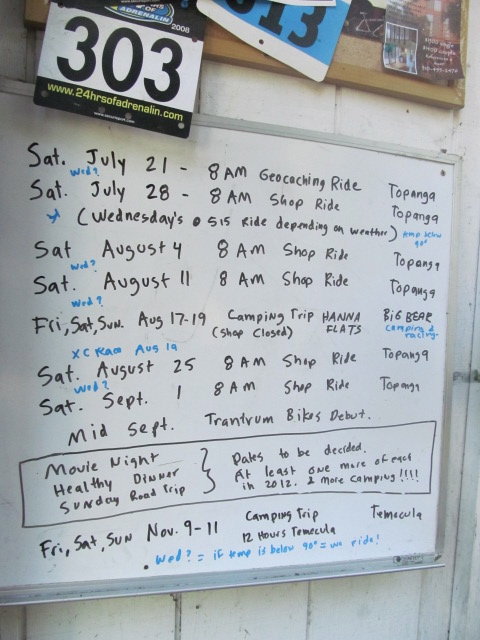 OF ADRENALIN
2008
303
www.24hrsofadrenalin.com
513
Sat. July 21 - 8 AM Geocaching Ride Topanga
Wed?
Sat. July 28 - 8 AM Shop Ride Topanga
(Wednesday's @ 515 Ride depending on weather) temp below 90°
Sat August 4 8 AM Shop Ride Topanga
Wed?
Sat. August 11 8 AM Shop Ride Topanga
Wed?
Fri, Sat, Sun. Aug 17-19 Camping Trip HANNA FLATS BIG BEAR
(Shop Closed) camping & racing
XC Race Aug 19
Sat. August 25 8 AM Shop Ride Topanga
Wed?
Sat. Sept. 1 8 AM Shop Ride Topanga
Mid Sept. Trantrum Bikes Debut.
Movie Night
Healthy Dinner
Sunday Road Trip
Dates to be decided.
At least one more of each
in 2012. & more camping!!!!
Fri, Sat, Sun Nov. 9-11 Camping Trip Temecula
12 Hours Temecula
Wed? = if temp is below 90° = we ride!